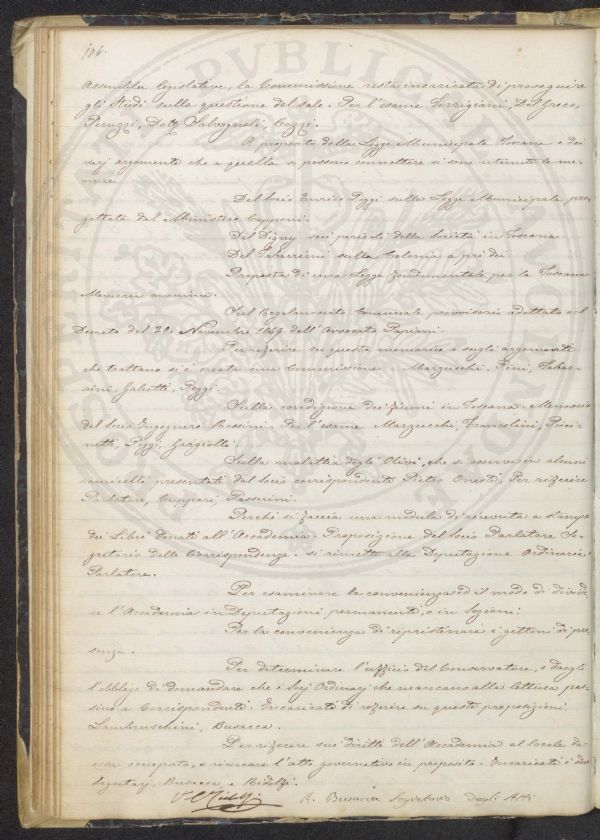 106.
Assemblee legislative, la Commissione resta incaricata di proseguire
gli Studi sulla questione del sale. Per l'esame Torrigiani, Del Greco,
Peruzzi, Dott. Salvagnoli, Cozzi.
A proposito della Legge Municipale Toscana e dei
varj argomenti che a quella si possono connettere si sono ritenute le me-
morie
Del Socio Enrico Poggi sulla Legge Municipale pro-
gettata dal Ministero Capponi.
Del Digny sui pericoli della Società in Toscana
Del Tabarrini sulla Colonia a prò dei
Proposta di una Legge fondamentale per la Toscana
Memoria anonima.
Sul Regolamento Comunale provvisorio adattato col
Decreto del 20. Novembre 1849 dell'Avvocato Papiani.
Per riferire su queste memorie e sugli argomenti
che trattano si è creata una Commissione: Marzucchi, Pini, Tabar-
rini, Galeotti, Poggi.
Sulla condizione dei fiumi in Toscana. Memoria
del Socio Ingegnere Rossini. Per l'esame Marzucchi, Francolini, Puci-
notti, Poggi, Gargiolli.
Sulla malattia degli Olivi, che si osserva in alcuni
ramicelli presentati dal Socio corrispondente Pietro Onesti, Per riferire
Parlatore, Cuppari, Passerini.
Perchè si faccia una modula di ricevuta a stampa
dei Libri donati all'Accademia. Proposizione del Socio Parlatore Se-
gretario delle Corrispondenze. Si rimette alla Deputazione Ordinaria
Parlatore.
Per esaminare la convenienza ed il modo di divide-
re l'Accademia in Deputazioni permanenti, o in Sezioni;
Per la convenienza di ripristinare i gettoni di pre-
senza.
Per determinare l'ufficio del Conservatore, e dargli
l'obbligo di domandare che i Socj Ordinarj che mancano alla lettura pas-
sino a Corrispondenti. Incaricati di riferire su queste proposizioni
Lambruschini, Busacca.
Per riferire sui diritti dell'Accademia al locale da
essa occupato, e ricercare l'atto governativo in proposito. Incaricati i due
Segretarj, Busacca, e Ridolfi.
R. Busacca Segretario degli Atti